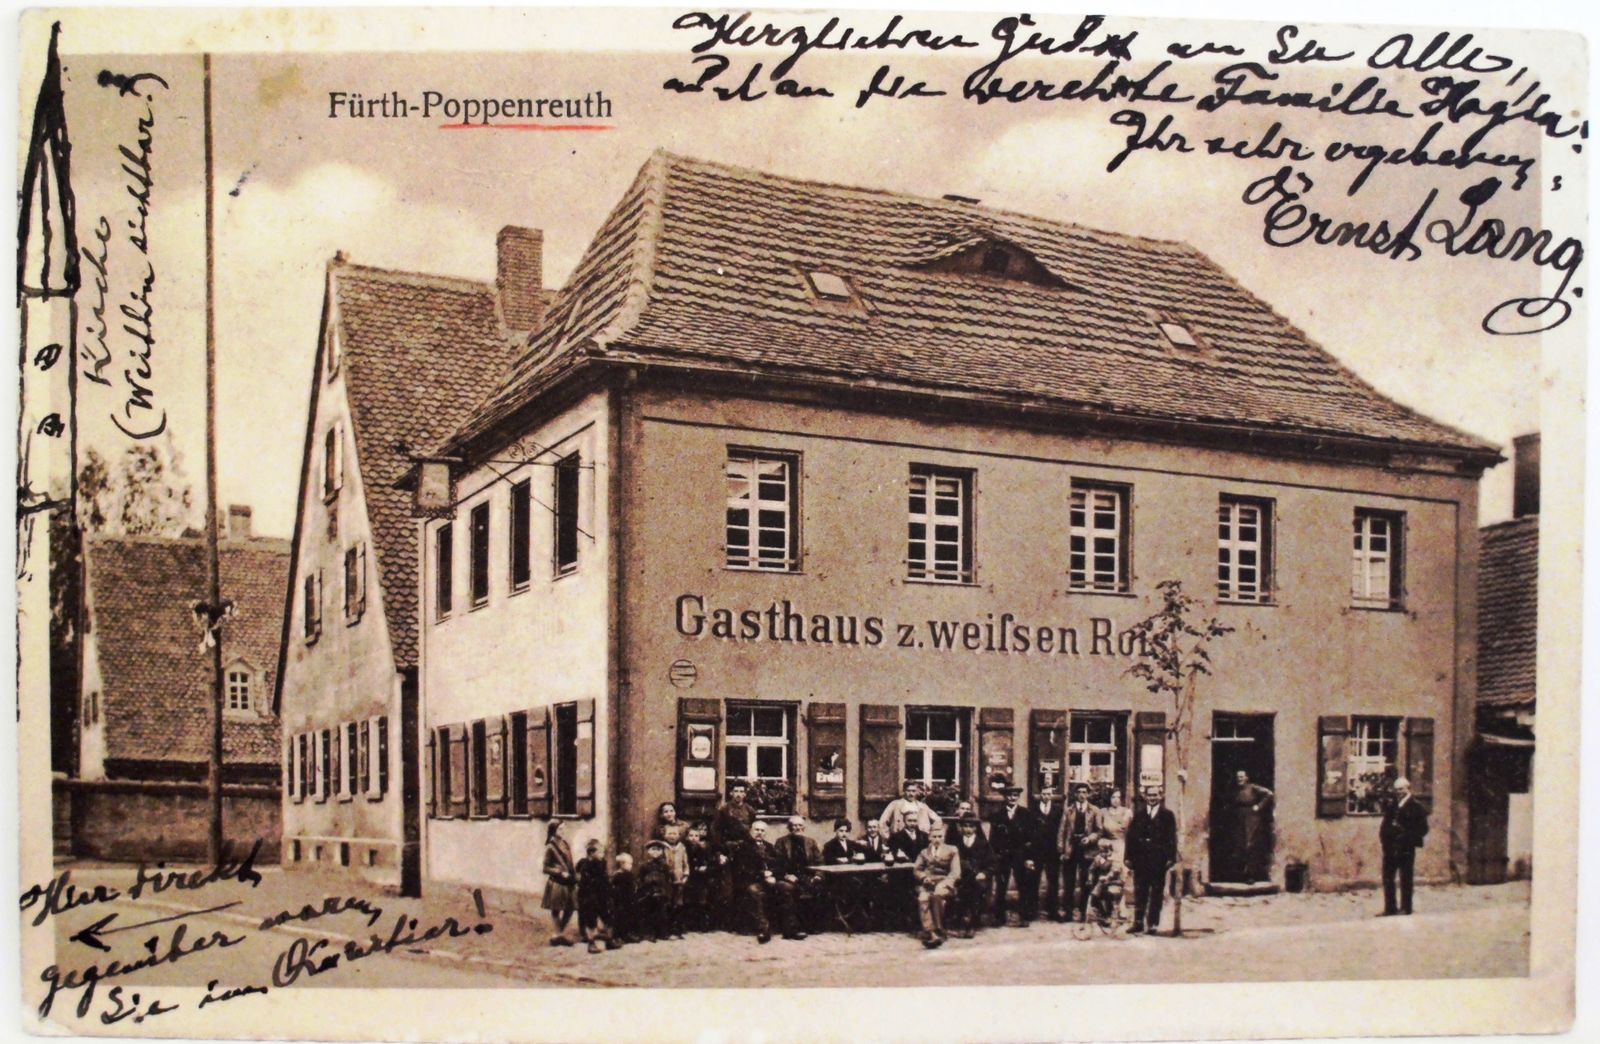 Herzlichen Gruß an Sie Alle,
auch an die verehrte Familie
Ihr sehr ergebener
Ernst Lang.
Fürth-Poppenreuth
Kirche
(Weithin sichtbar!)
Gasthaus z. weiſsen Roſs
Erdal
MAGGI
Hier direkt
gegenüber waren
Sie im Quartier!